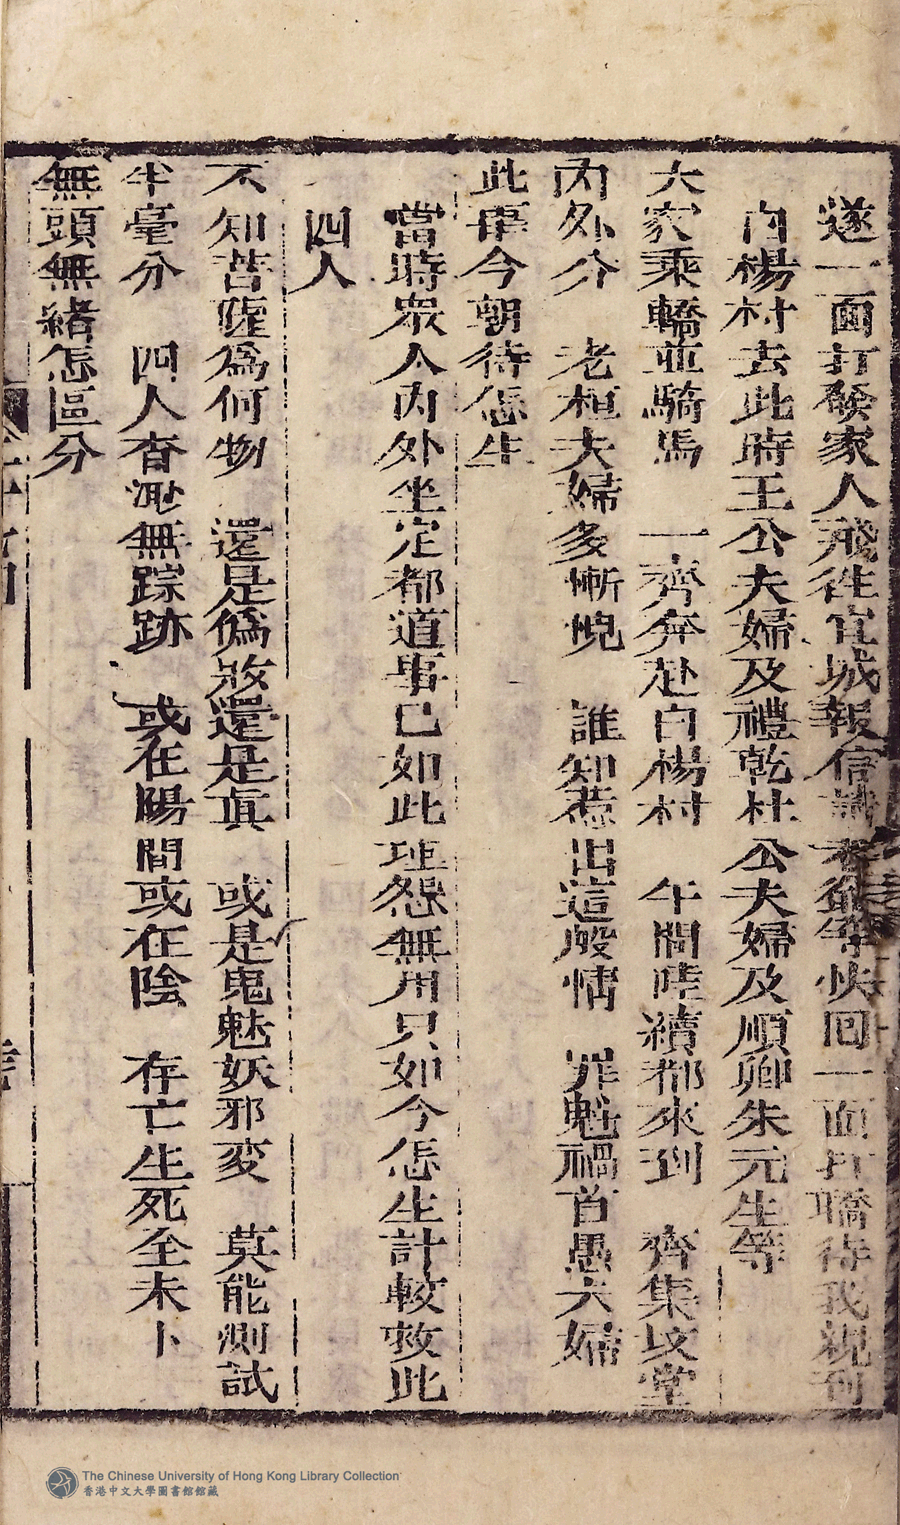 遂一面打發家人飛往宜城報信 等快回一面打轎待我親到
白楊村去此時王公夫婦及禮乾杜公夫婦及順卿朱元生等
大家乘轎並騎馬 一齊奔赴白楊村 午間陸續都來到 齊集坟堂
內外分 老桓夫婦多慚愧 誰知惹出這般情 罪魁禍首愚夫婦
此事今朝待怎生
當時眾人內外坐定都道事已如此埋怨無用只如今怎生計較救此
四人
不知苦陞為何物 還是偽敚還是真 或是鬼魅妖邪变 莫能測試
半毫分 四人杳渺無踪跡 或在陽間或在陰 存亡生死全未卜
無頭無緒怎區分
The Chinese University of Hong Kong Library Collection
香港中文大學圖書館館藏